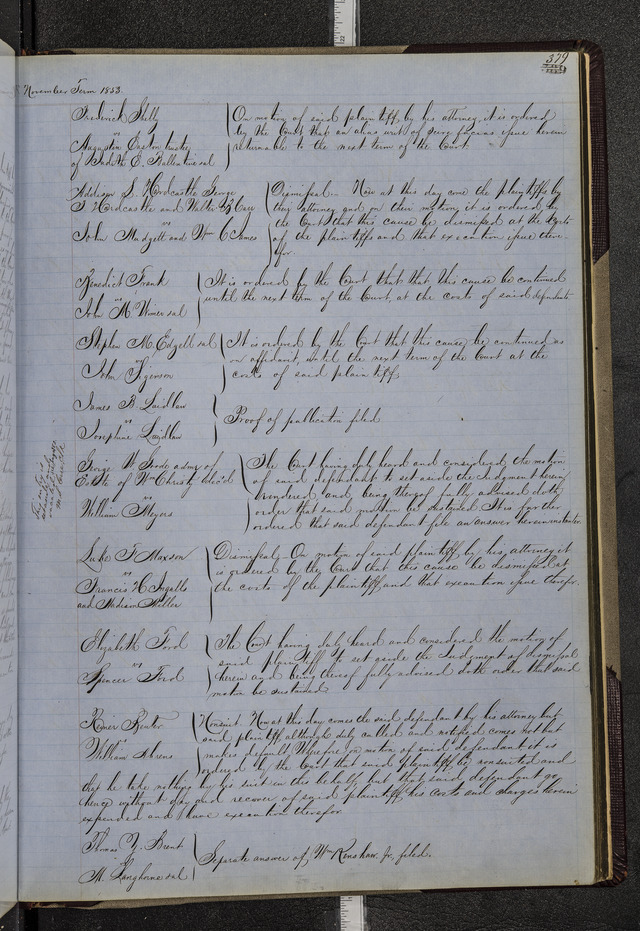 379
November Term 1853.
Frederick Shelly
vs
Augustin Easton trustee
of Judith E. Ballna et al
On motion of said plaintiff, by his attorney, it is ordered
by the Court that an alias writ of scire facias issue herein
returnable to the next term of the Court.
Addison S. Hardcastle George
T. Hardcastle and
vs
John Mudgett and Wm C James
Dismissal - Now at this day come the plaintiffs by
their attorney and on their motion it is ordered by
the Court that this cause be dismissed at the costs
of the plaintiffs and that execution issue there-
for.
Benedict Frank
vs
John M Wimer et al
It is ordered by the Court that this cause be continued
until the next term of the Court, at the costs of said defendants
Stephen M. Edgell et al
vs
John
It is ordered by the Court that this cause be continued as
on affidavit, until the next term of the Court at the
costs of said plaintiff.
James B. Laidlaw
vs
Josephine Laidlaw
Proof of publication filed
George W. Goode admr of
Estate of Wm Christy dec'd
vs
William Myers
The Court having duly heard and considered the motion
of said defendant to set aside the Judgment herein
rendered and being thereof fully advised doth
order that said motion be sustained. It is further
ordered that said defendant file an answer herein instanter
Luke F Maxson
vs
Francis H. Ingalls
and Madison Miller
Dismissal - On motion of said plaintiff, by his attorney it
is ordered by the Court that this cause be dismissed at
the costs of the plaintiff, and that execution issue therefor.
Elizabeth Ford
vs
Spencer Ford
The Court having duly heard and considered the motion of
said plaintiff to set aside the Judgment of dismissal
herein and being thereof fully advised doth order that said
motion be sustained
vs
William Ahrens
Nonsuit Now at this day comes the said defendant by his attorney but
said plaintiff although duly called and notified comes not but
makes default. Wherefore on motion of said defendant it is
ordered by the Court that said plaintiff be nonsuited and
that he take nothing by his suit in this behalf but that said defendant go
hence without day and recover of said plaintiff his costs and charges herein
expended and have execution therefor
Thomas Y. Brent
vs
M Langhorne et al
Separate answer of Wm Renshaw Jr. filed.